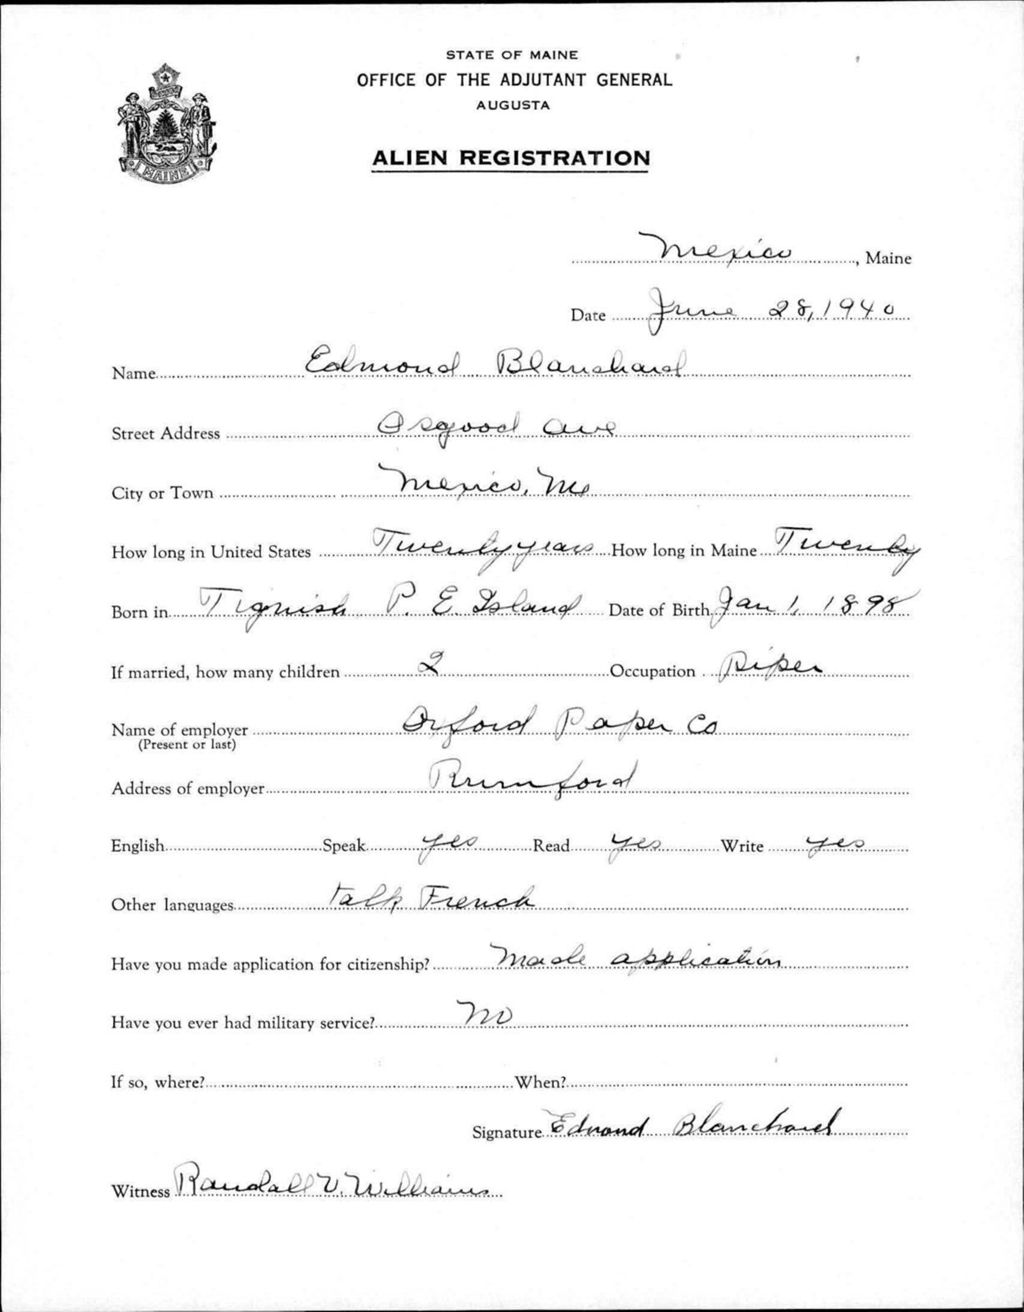 STATE OF MAINE
OFFICE OF THE ADJUTANT GENERAL
AUGUSTA
ALIEN REGISTRATION
MAINE
Mexico, Maine
Date June 28, 1940
Name Edmond Blanchard
Street Address Osgood Ave
City or Town Mexico, Me
How long in United States Twenty years How long in Maine Twenty
Born in Tignish P. E. Island Date of Birth Jan 1, 1898
If married, how many children 2 Occupation Piper
Name of employer Oxford Paper Co
(Present or last)
Address of employer Rumford
English Speak yes Read yes Write yes
Other languages talk French
Have you made application for citizenship? Made application
Have you ever had military service? No
If so, where? When?
Signature Edmond Blanchard
Witness Randall V. Williams